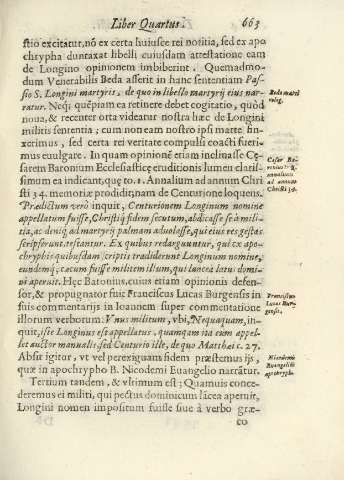 Liber Quartus. 663
stio excitatur, nō ex certa huiusce rei notitia, sed ex apo
chrypha duntaxat libelli cuiusdam attestatione eam
de Longino opinionem imbiberint. Quemadmo-
dum Venerabilis Beda asserit in hanc sententiam Pas-
sio S. Longini martyris, de quo in libello martyrij eius nar-
ratur. Neq; quēpiam ea retinere debet cogitatio, quòd
noua, & recenter orta videatur nostra hæc de Longini
militis sententia, cum non eam nostro ipsi marte fin-
xerimus, sed certa rei veritate compulsi coacti fueri-
mus euulgare. In quam opinionē etiam inclinasse Cę-
sarem Baronium Ecclesiasticę eruditionis lumen claris-
simum ea indicant, quę to. 1. Annalium ad annum Chri
sti 34. memoriæ prodidit, nam de Centurione loquens.
Prædictum verò inquit, Centurionem Longinum nomine
appellatum fuisse, Christiq; fidem secutum, abdicasse se à mili-
tia, ac deniq; ad martyrij palmam aduolasse, qui eius res gestas
scripserunt, testantur. Ex quibus redarguuntur, qui ex apo-
chryphis quibusdam scriptis tradiderunt Longinum nomine,
eundemq; cæcum fuisse militem illum, qui lancea latus domi-
ni aperuit. Hęc Baronius, cuius etiam opinionis defen-
sor, & propugnator fuit Franciscus Lucas Burgensis in
suis commentarijs in Ioannem super commentatione
illorum verborum Vnus militum, vbi, Nequaquam, in-
quit, iste Longinus est appellatus, quamquam ita eum appel-
let auctor manualis, sed Centurio ille, de quo Matthæi c. 27.
Absit igitur, vt vel perexiguam fidem præstemus ijs,
quæ in apochrypho B. Nicodemi Euangelio narrātur.
Tertium tandem, & vltimum est; Quamuis conce-
deremus ei militi, qui pectus dominicum lācea aperuit,
Longini nomen impositum fuisse siue à verbo græ-
co
Beda martyrolog.
Cæsar Baronius
annalium
ad annum
Christi 34.
Franciscus
Lucas Burgensis.
Nicodemi
Euangelium
apochrypho.